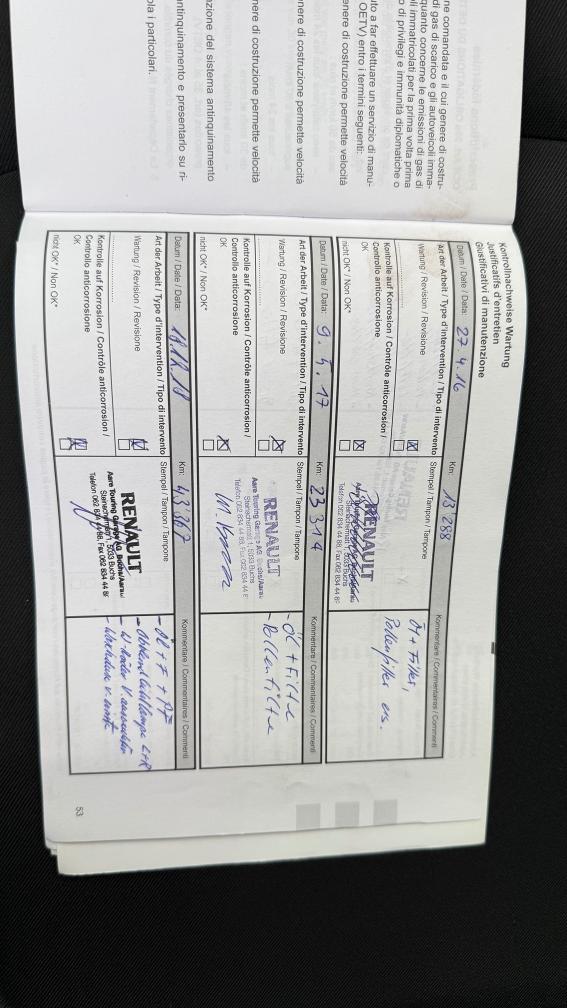 ne comandata e il cui genere di costru-
di gas di scarico e gli autoveicoli imma-
quanto concerne le emissioni di gas di
li immatricolati per la prima volta prima
o di privilegi e immunità diplomatiche o
uto a far effettuare un servizio di manu-
OETV) entro i termini seguenti:
enere di costruzione permette velocità
enere di costruzione permette velocità
nere di costruzione permette velocità
zione del sistema antinquinamento
antinquinamento e presentarlo su ri-
ola i particolari.
Kontrollnachweise Wartung
Justificatifs d'entretien
Giustificativi di manutenzione
Datum / Date / Data: 27.4.16 Km: 13'288 Kommentare / Commentaires / Commenti
Art der Arbeit / Type d'intervention / Tipo di intervento Stempel / Tampon / Tampone
Wartung / Revision / Revisione
Kontrolle auf Korrosion / Contrôle anticorrosion /
Controllo anticorrosione
OK
nicht OK* / Non OK*
RENAULT
Telefon 062 834 44 88, Fax 062 834 44 8
Öl + Filter,
Pollenfilter ers.
Datum / Date / Data: 9.5.17 Km: 23314 Kommentare / Commentaires / Commenti
Art der Arbeit / Type d'intervention / Tipo di intervento Stempel / Tampon / Tampone
Wartung / Revision / Revisione
Kontrolle auf Korrosion / Contrôle anticorrosion /
Controllo anticorrosione
OK
nicht OK* / Non OK*
RENAULT
Aare Touring Garage AG, Buchs/Aarau
5033 Buchs
Telefon 062 834 44 88, Fax 062 834 44 8
- Öl + Filter
- Pollenfilter
Datum / Date / Data: Km: 43'367 Kommentare / Commentaires / Commenti
Art der Arbeit / Type d'intervention / Tipo di intervento Stempel / Tampon / Tampone
Wartung / Revision / Revisione
Kontrolle auf Korrosion / Contrôle anticorrosion /
Controllo anticorrosione
OK
nicht OK* / Non OK*
RENAULT
Aare Touring Garage AG, Buchs/Aarau
5033 Buchs
Telefon 062 834 44 88, Fax 062 834 44 8
- Öl + F + PF
53